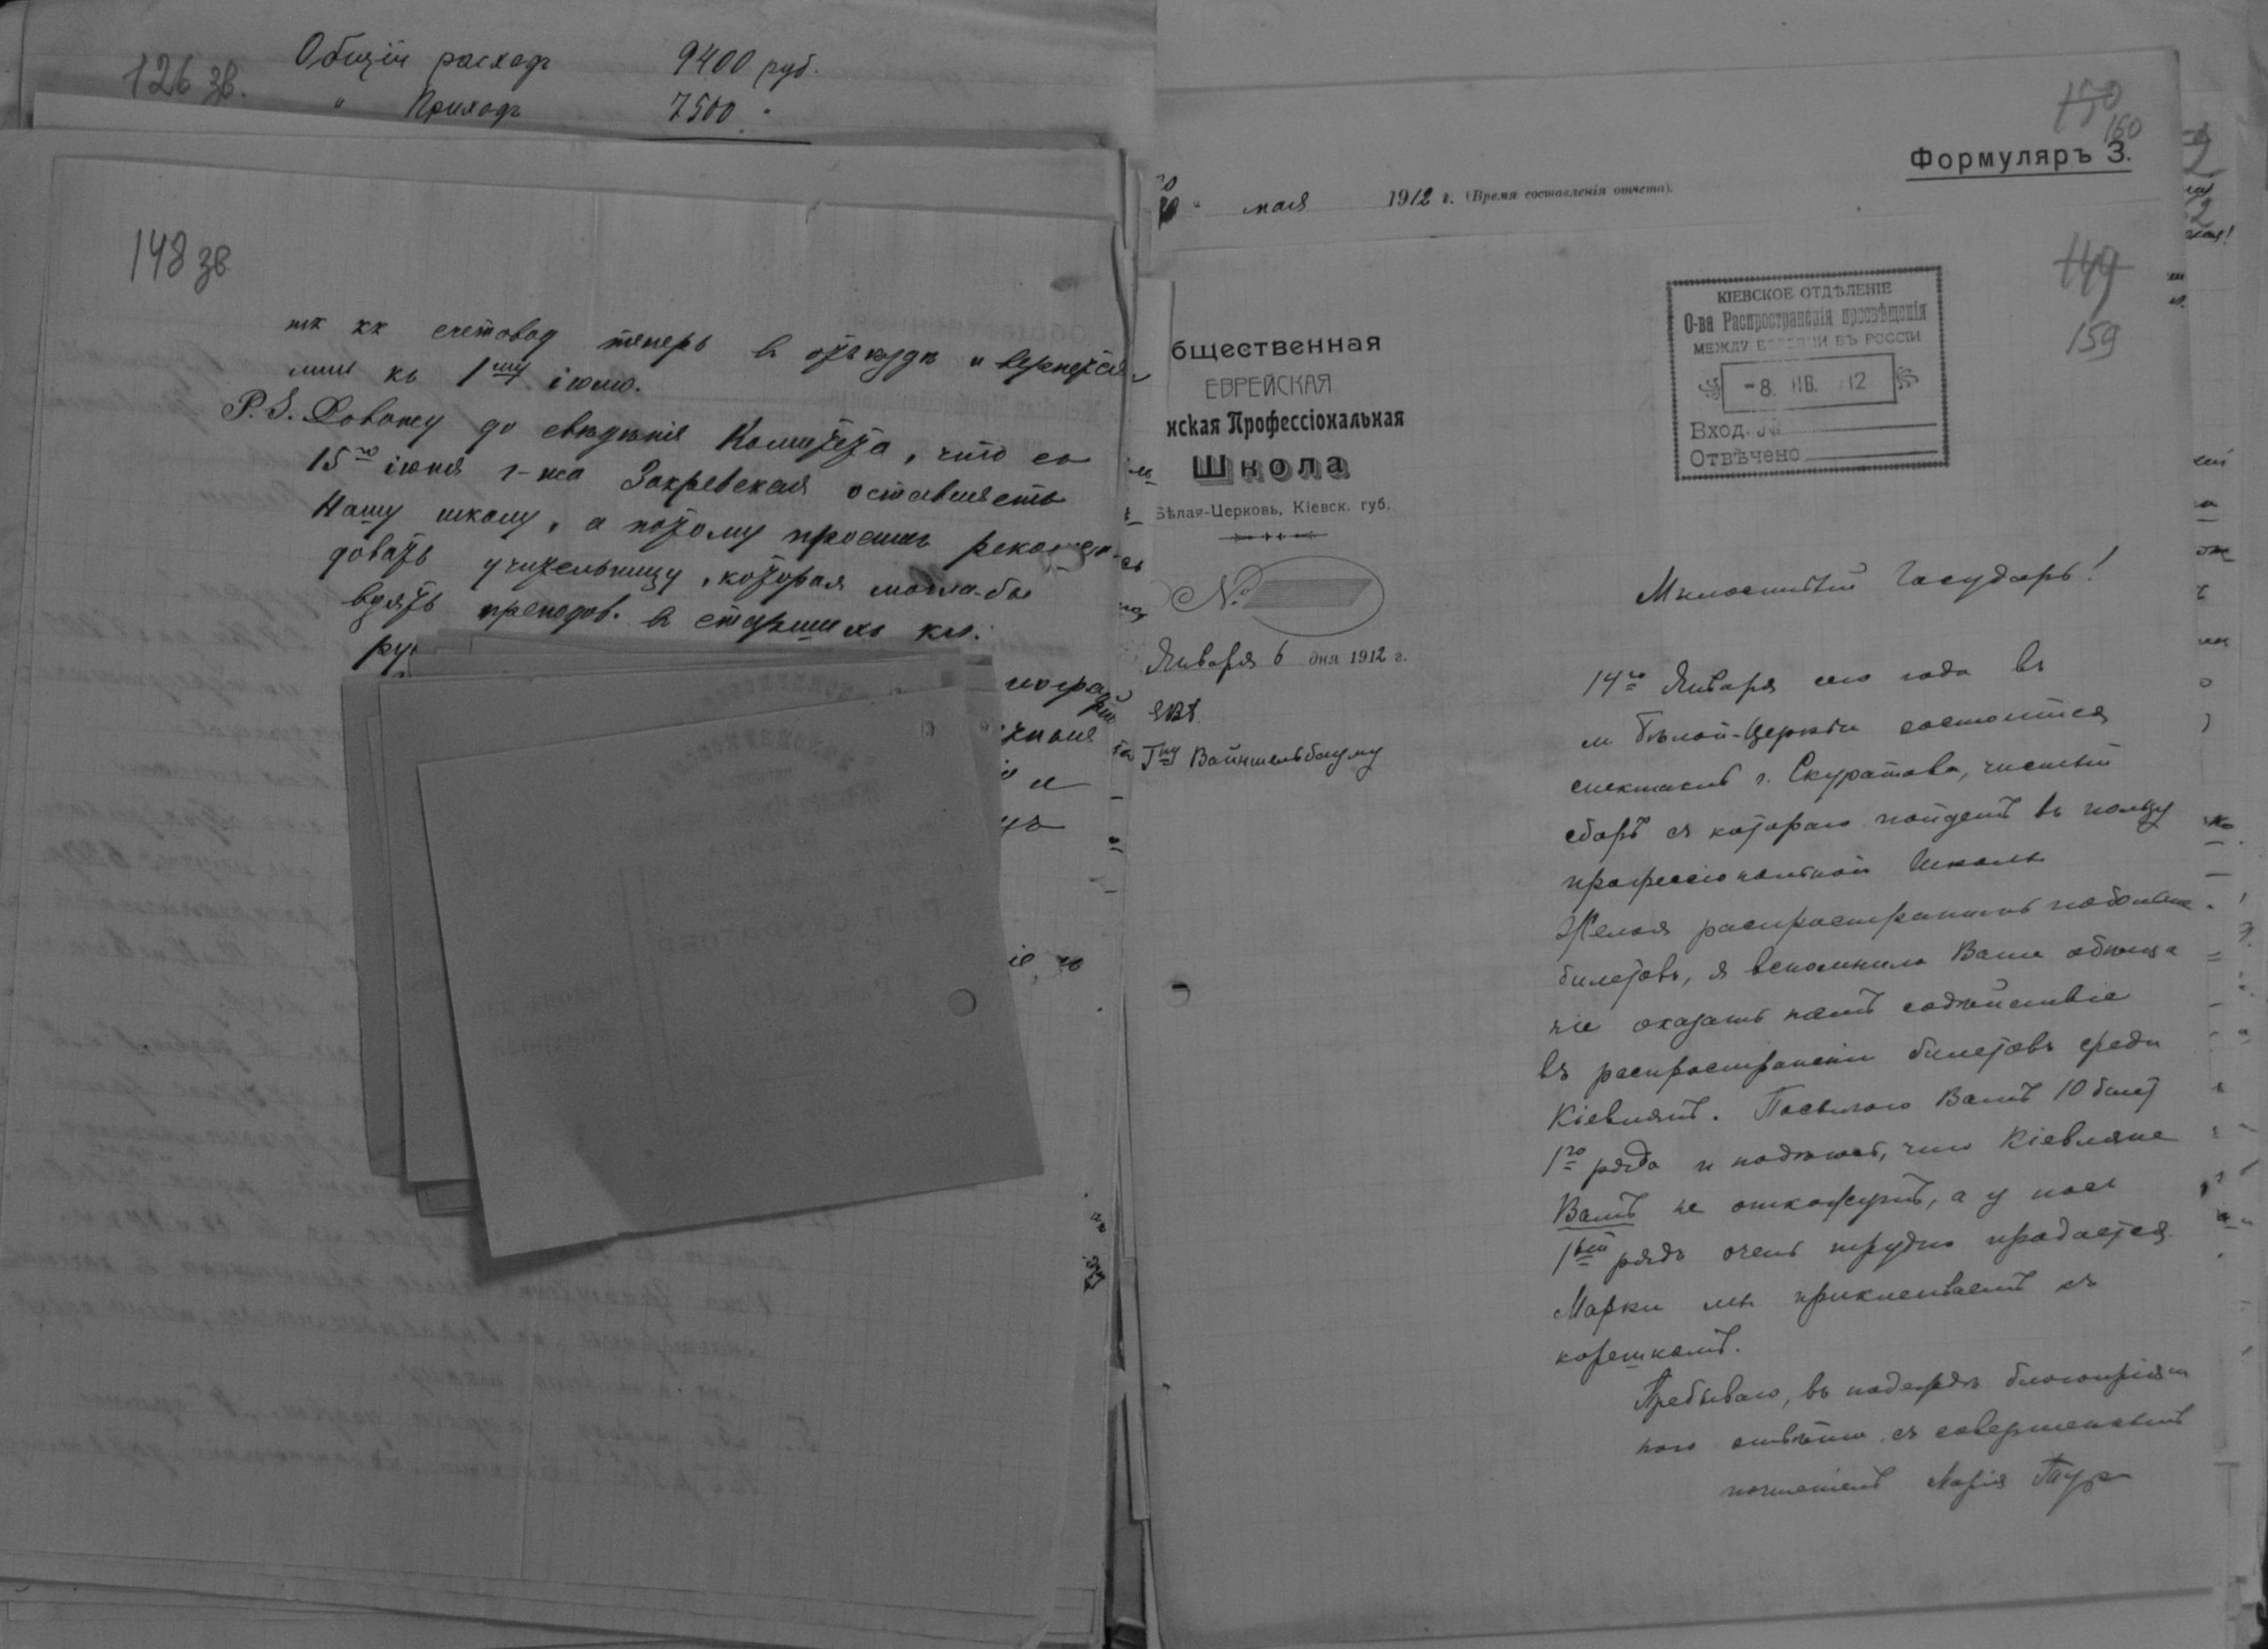 126 зв.
Общій расходъ 9400 руб.
" Приходъ 7500 "
148 зв.
тк кк счетовод теперь в отъѣздѣ и вернется
лишь къ 1му іюлю.
P.S. Довожу до свѣдѣнія Комитета, что съ
15го іюня г-жа Закревская оставляетъ
Нашу школу, а потому просимъ рекомен-
довать учительницу, которая могла-бы
взять преподов. в старшихъ кл.
ру
150
160
Формуляръ 3.
мая 1912 г. (Время составленія отчета).
149
159
КІЕВСКОЕ ОТДѢЛЕНІЕ
О-ва Распространенія просвѣщенія
МЕЖДУ ЕВРЕЯМИ ВЪ РОССІИ
-8. ЯНВ. 12
Вход. №
Отвѣчено
бщественная
ЕВРЕЙСКАЯ
нская Профессіональная
Школа
Бѣлая-Церковь, Кіевск. губ.
№
Января 6 дня 1912 г.
ЕВВ.
Гну Вайншельбауму
Милостивый Государь!
14го Января сего года въ
м. Бѣлой-Церкви состоится
спектакль г. Скуратова, чистый
сборъ съ котораго пойдетъ въ пользу
профессіональной Школы.
Желая распространить побольше
билетовъ, я вспомнила Ваше обѣща
ніе оказать намъ содѣйствіе
въ распространеніи билетовъ среди
Кіевлянъ. Посылаю Вамъ 10 билет
1го ряда и надѣюсь, что Кіевляне
Вамъ не откажутъ, а у насъ
1ый рядъ очень трудно продается.
Марки мы приклеиваемъ къ
корешкамъ.
Пребываю, въ надеждѣ благопріят
наго отвѣта, съ совершеннымъ
почтеніемъ Марія